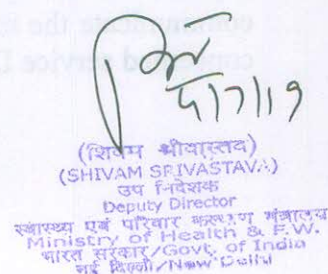 communicate the
service D
(शिवम श्रीवास्तव)
(SHIVAM SRIVASTAVA)
उप निदेशक
Deputy Director
स्वास्थ्य एवं परिवार कल्याण मंत्रालय
Ministry of Health & F.W.
भारत सरकार/Govt. of India
नई दिल्ली/New Delhi